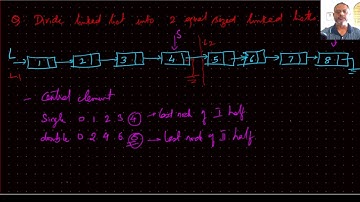 Q: Divide linked list into 2 equal sized linked lists.
S L2
L 1 2 3 4 5 6 7 8
L1
- Central element
Single 0 1 2 3 4 → last node of I half
double 0 2 4 6 8 → last node of II half